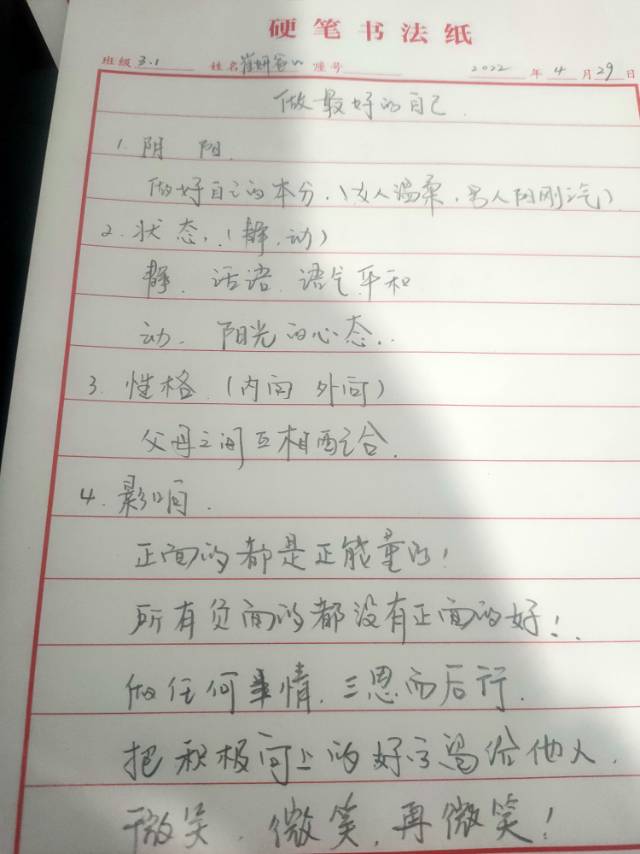 硬笔书法纸
班级 3.1 姓名 崔妍 座号 2022 年 4 月 29 日
做最好的自己.
1. 阴 阳.
做好自己的本分.(女人温柔.男人阳刚之气)
2. 状态.(静.动)
静. 话语. 语气平和
动. 阳光的心态..
3. 性格.(内向 外向)
父母之间互相配合.
4. 影响.
正面的都是正能量的!
所有负面的都没有正面的好!.
做任何事情.三恩而后行.
把积极向上的好字留给他人.
微笑.微笑.再微笑!